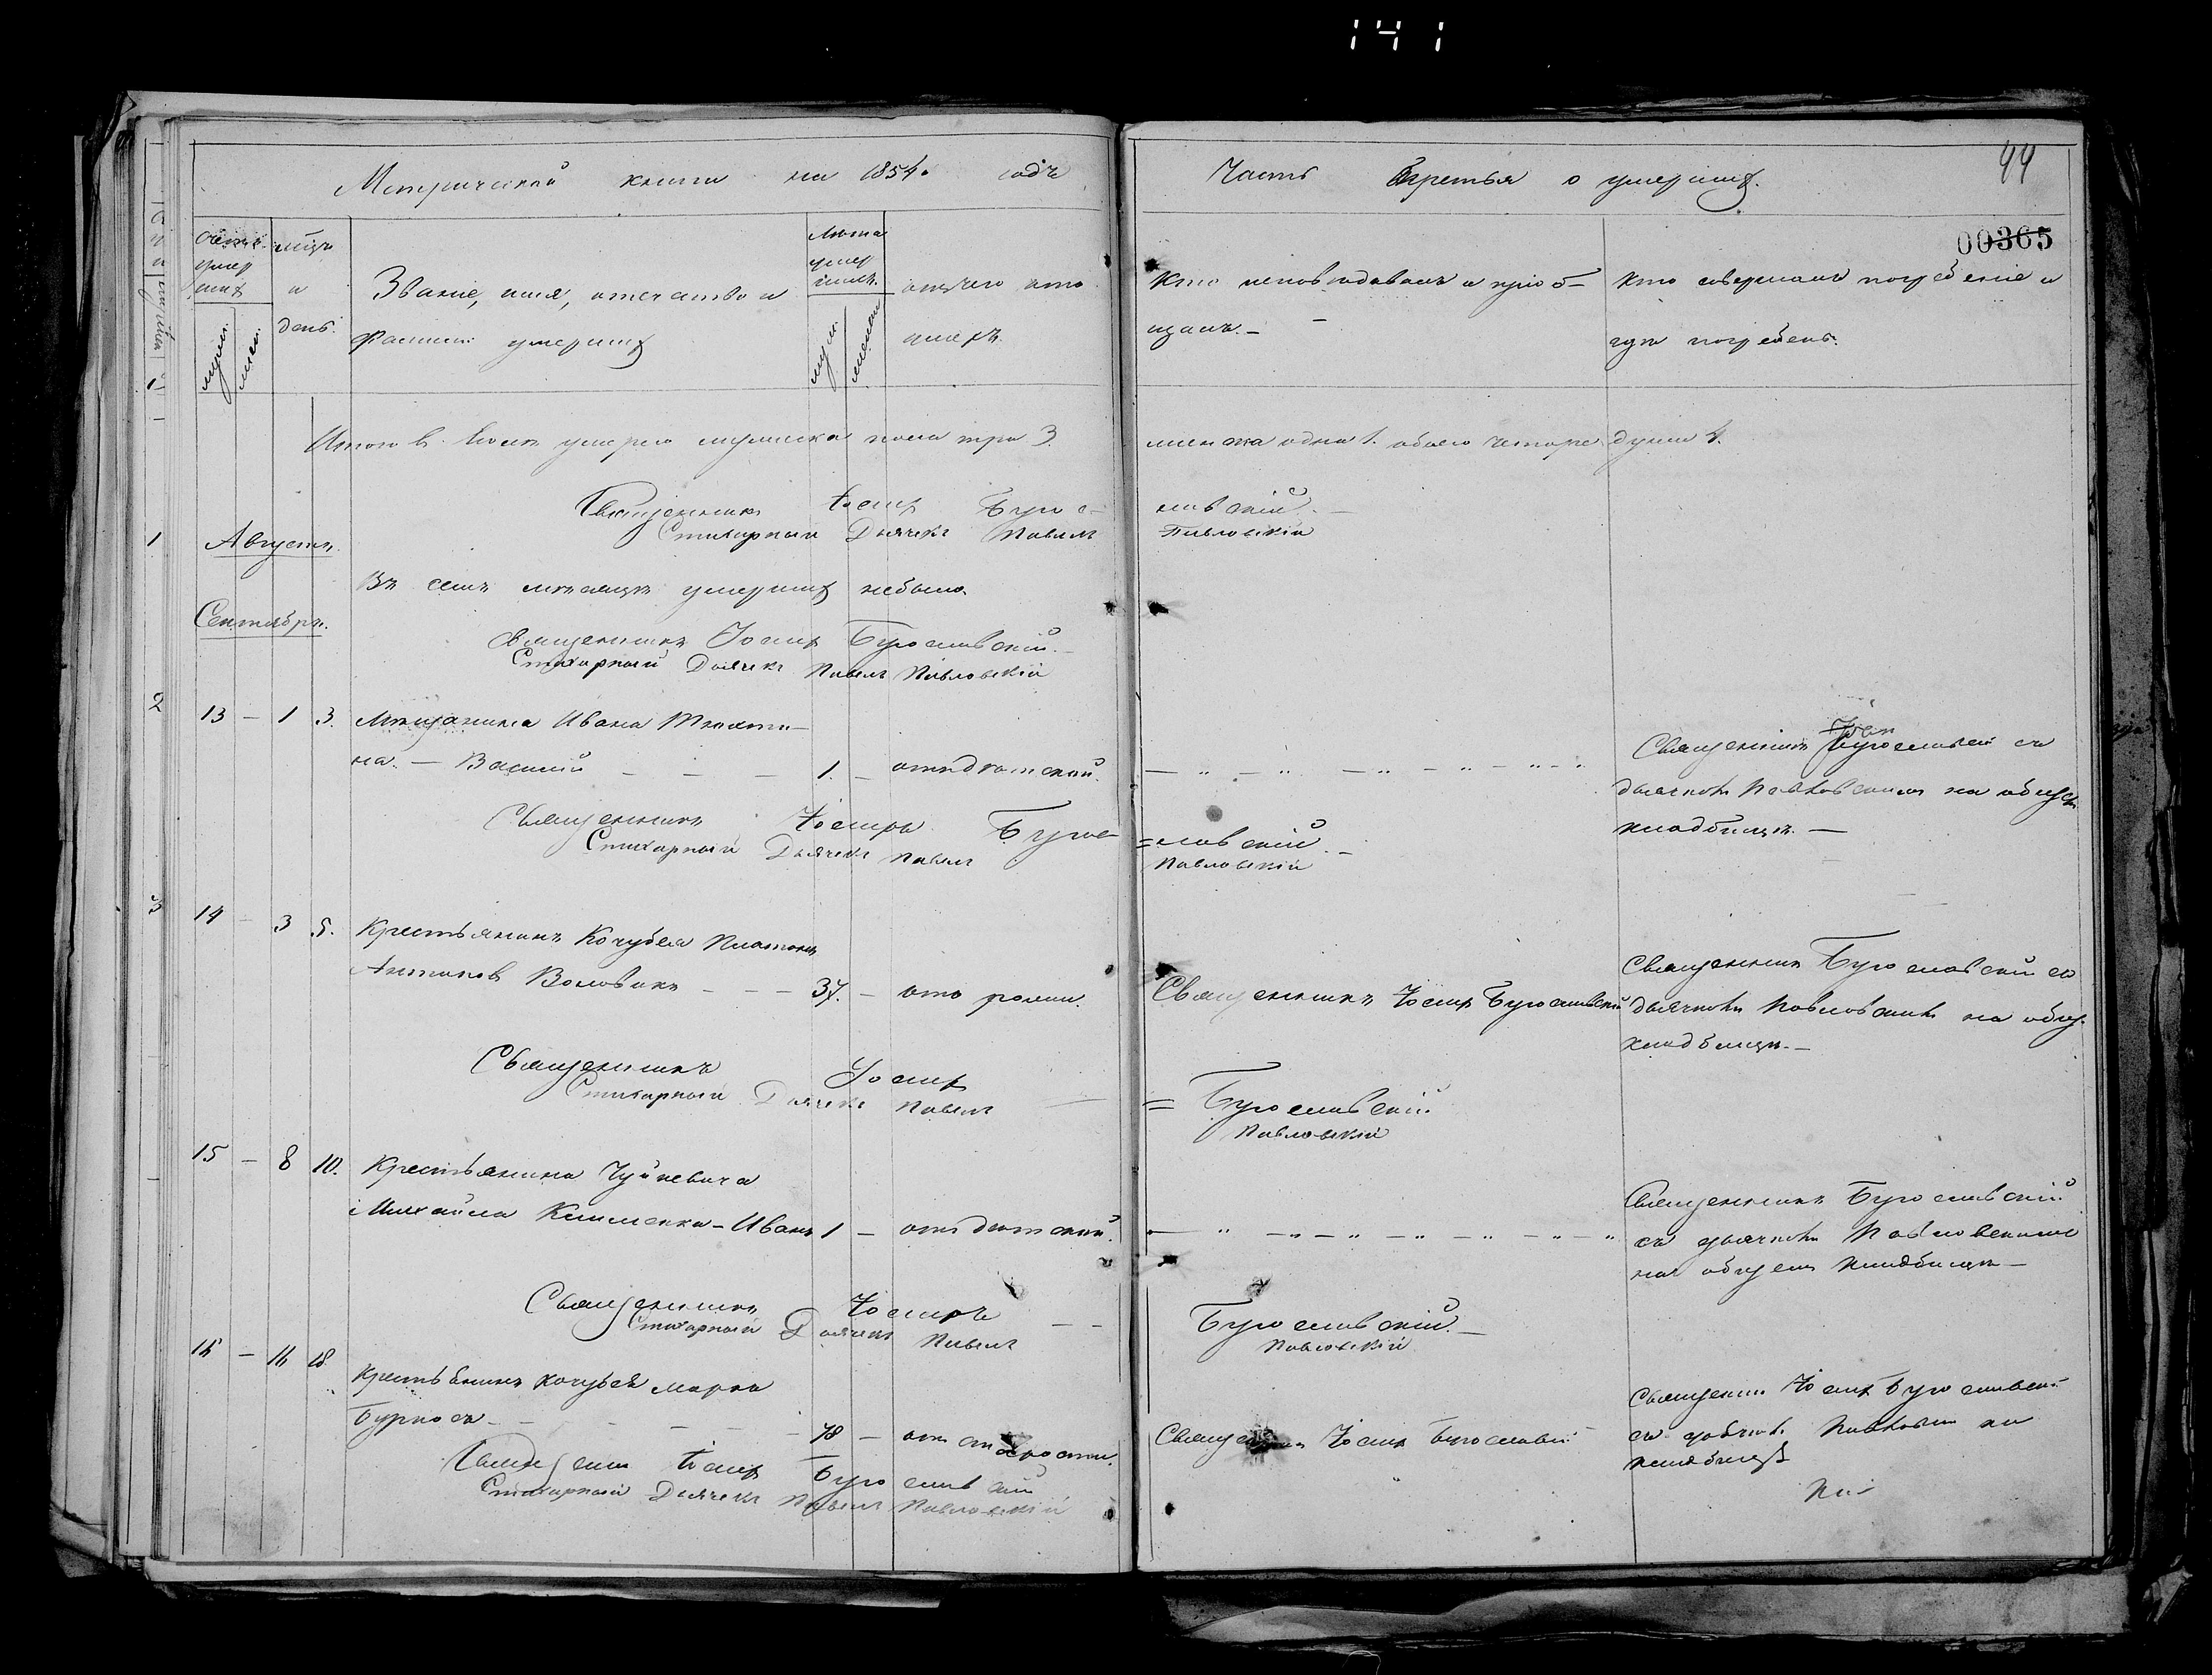 141
Метрической книги на 1854. годъ
Часть третья о умершихъ.
44
00365
счетъ умершихъ
мужск.
жен.
мѣсяцъ и день.
Званіе, имя, отечество и
фамилія умершихъ
Лѣта умершихъ.
мужск.
женск.
отъ чего кто
умеръ.
Кто исповѣдовалъ и пріоб-
щалъ. –
Кто совершалъ погребеніе и
гдѣ погребенъ.
Итого в Іюлѣ умерло мужеска пола три 3. женска одна 1. обоего четыре души 4.
Священникъ Іосифъ Бугославскій. –
Стихарный Дьячекъ Павелъ Павловскій
1
Августъ.
Въ семъ мѣсяцѣ умершихъ небыло.
Сентябрь.
Священникъ Іосифъ Бугославскій. –
Стихарный Дьячекъ Павелъ Павловскій
2
13 – 1 3. Мѣщанина Ивана
на. – Василій – – – 1. – отъ дѣтской. – " – " – " – " – " – "
Священникъ Бугославскій съ
дьячкомъ Павловскимъ на общемъ
кладбищѣ. –
Священникъ Іосифъ Буго-
=славскій. –
Стихарный Дьячекъ Павелъ Павловскій
3
14 – 3 5. Крестьянинъ Кочубея Платонъ
Антоновъ Воловикъ – – – 37. – отъ рожи. Священникъ Іосифъ Бугославскій
Священникъ Бугославскій со
дьячкомъ Павловскимъ на общ.
кладбищѣ. –
Священникъ Іосифъ
= Бугославскій
Стихарный Дьячекъ Павелъ Павловскій
15 – 8 10. Крестьянина Чуйкевича
Михайла Клименка – Иванъ 1 – отъ дѣтской. – " – " – " – " – " – " – "
Священникъ Бугославскій
съ дьячкомъ Павловскимъ
на общемъ кладбищѣ –
Священникъ Іосифъ – – Бугославскій. –
Стихарный Дьячекъ Павелъ Павловскій
16 – 16 18 Крестьянинъ Кочубея Марко
Бурносъ – – – – – 78 – отъ старости. Священникъ Іосифъ Бугославскій
Священникъ Іосифъ Бугославскій
съ дьячкомъ Павловским на
кладбищѣ
Священникъ Іосифъ Бугославскій
Стихарный Дьячекъ Павелъ Павловскій